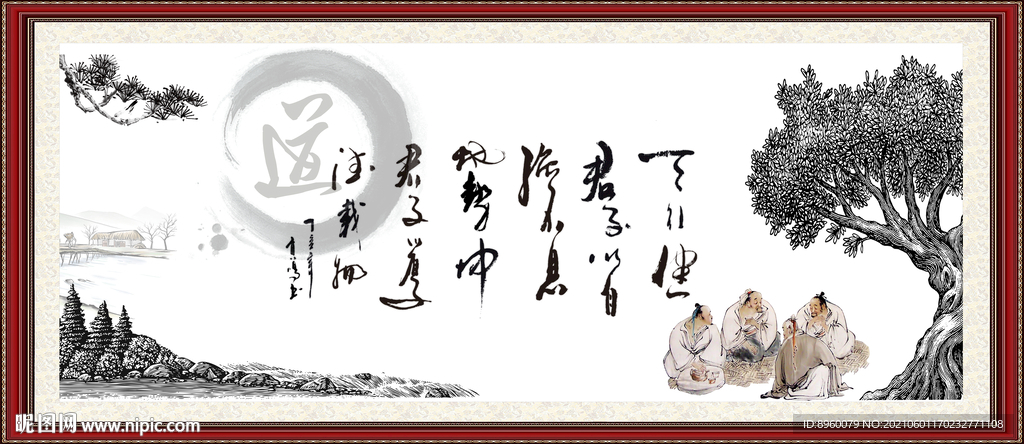 天行健
君子以自
強不息
地勢坤
君子厚
德載物
道
昵图网 www.nipic.com
ID:8960079 NO:20210601170232771108